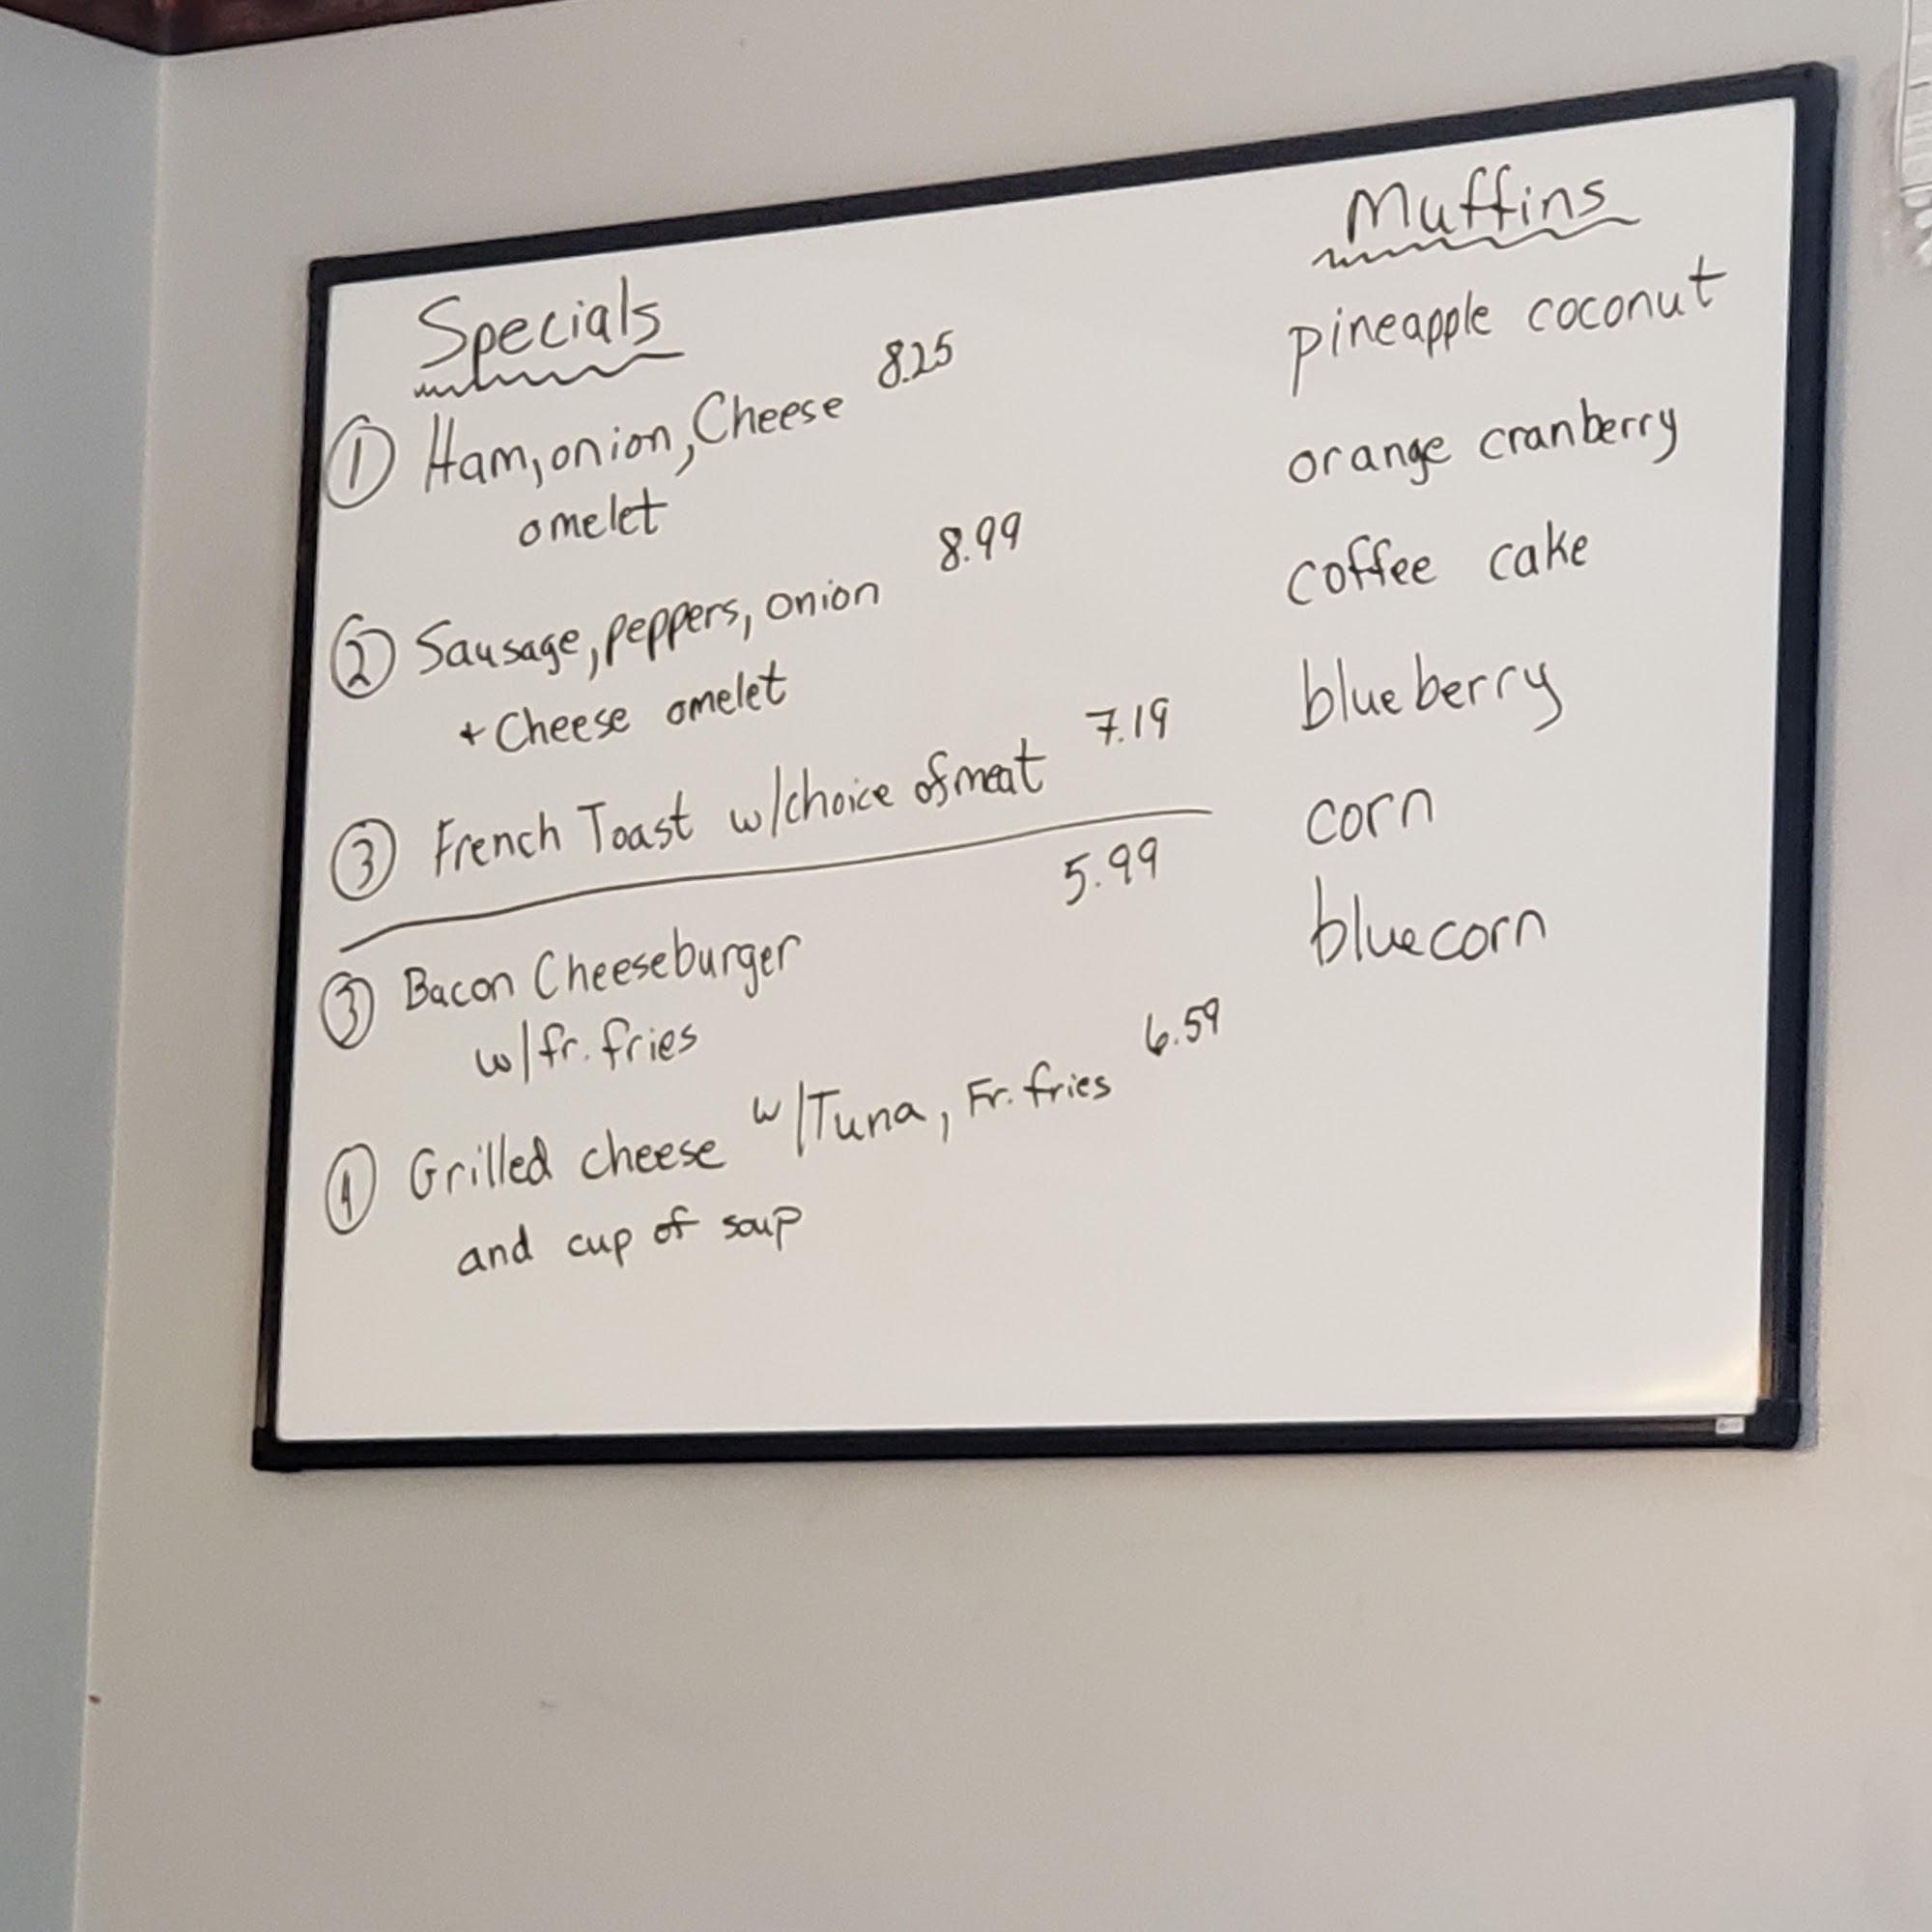 Specials
① Ham, onion, Cheese 8.25
omelet
② Sausage, peppers, onion 8.99
+ Cheese omelet
③ French Toast w/choice of meat 7.19
5.99
③ Bacon Cheeseburger
w/fr. fries
④ Grilled cheese w/Tuna, Fr. fries 6.59
and cup of soup
Muffins
pineapple coconut
orange cranberry
coffee cake
blueberry
corn
bluecorn